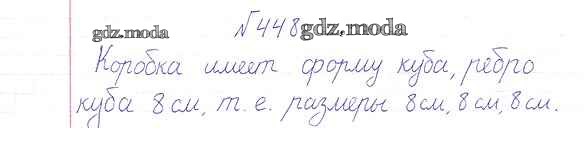 №448 gdz.moda
gdz.moda
Коробка имеет форму куба, ребро
куба 8 см, т. е. размеры 8 см, 8 см, 8 см.